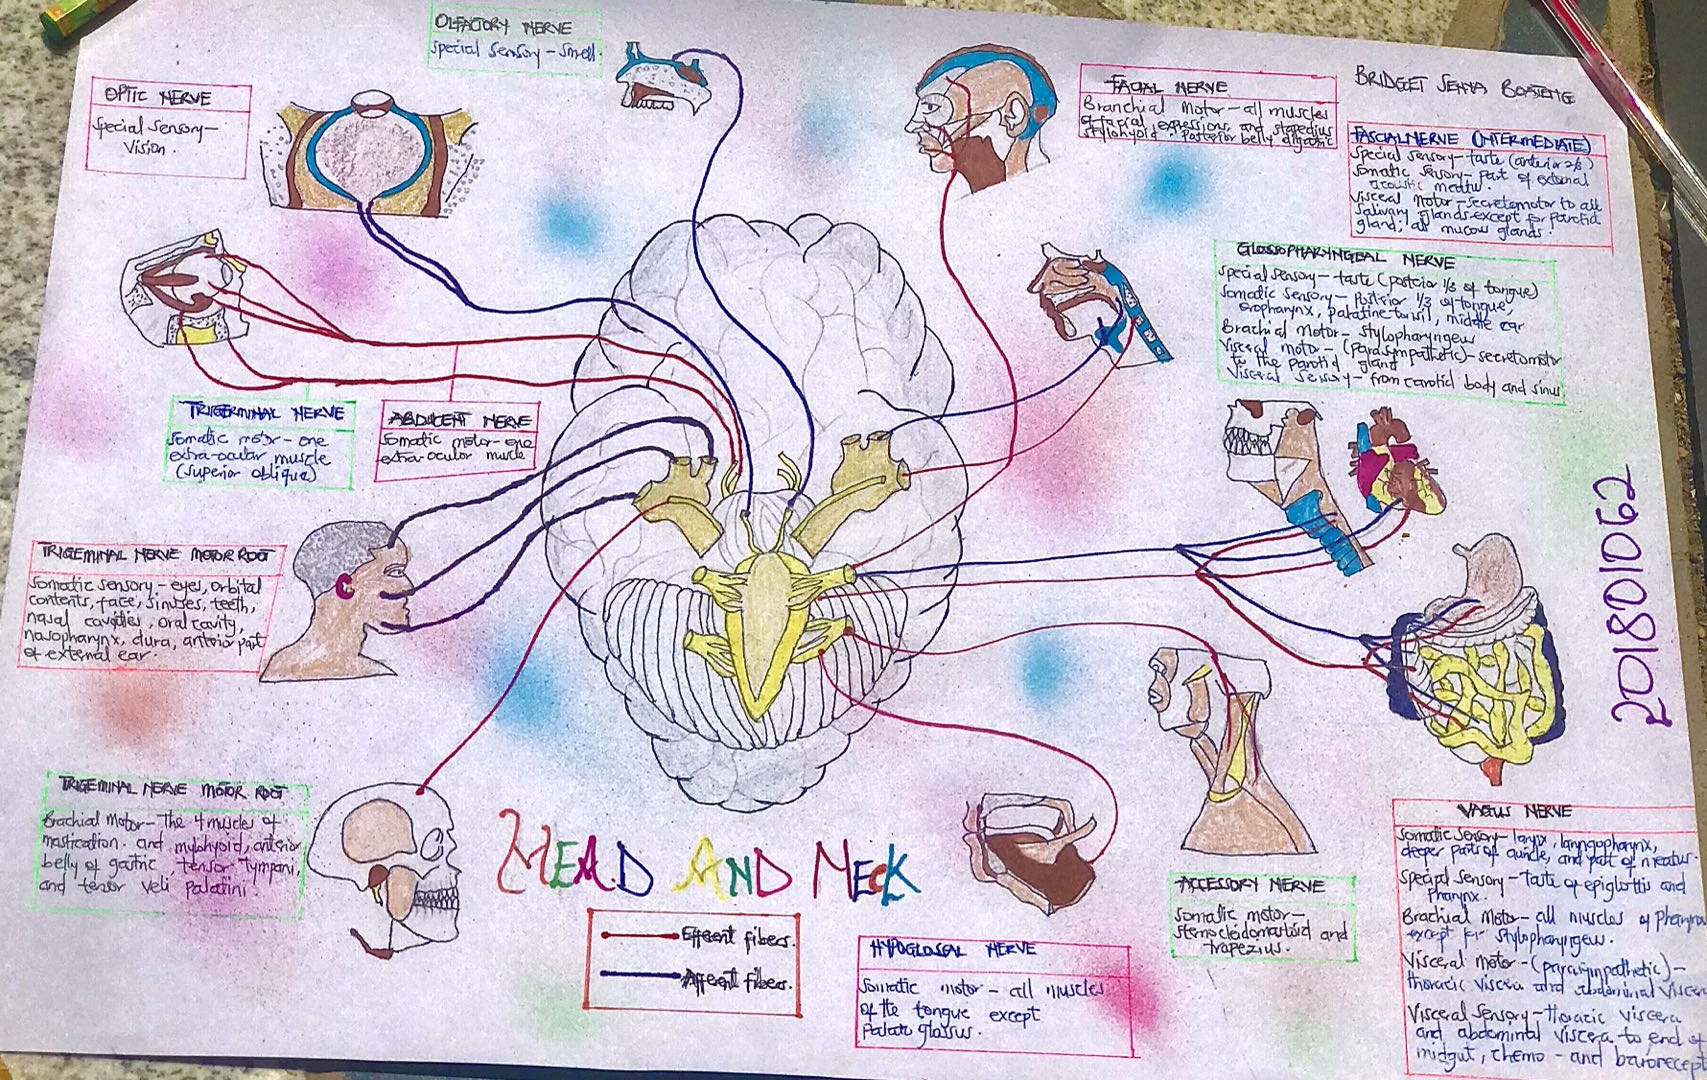 OLFACTORY NERVE
Special Sensory - Smell.
OPTIC NERVE
Special Sensory -
Vision.
FACIAL NERVE
Branchial Motor - all muscles
of facial expressions, and stapedius
stylohyoid, posterior belly digastric
BRIDGET SENNA BOATENG
FASCIAL NERVE (INTERMEDIATE)
Special sensory - taste (anterior 2/3)
Somatic sensory - part of external
acoustic meatus.
Visceral Motor - secretomotor to all
salivary glands except for parotid
gland, all mucous glands.
GLOSSOPHARYNGEAL NERVE
Special sensory - taste (posterior 1/3 of tongue)
Somatic sensory - Posterior 1/3 of tongue,
oropharynx, palatine tonsil, middle ear
Brachial Motor - stylopharyngeus
Visceral motor - (Parasympathetic) - secretomotor
to the parotid gland
Visceral Sensory - from carotid body and sinus
TRIGERMINAL NERVE
Somatic motor - one
extra-ocular muscle
(Superior oblique)
ABDUCENT NERVE
Somatic motor - one
extra-ocular muscle
TRIGEMINAL NERVE MOTOR ROOT
Somatic sensory - eyes, orbital
contents, face, sinuses, teeth,
nasal cavities, oral cavity,
nasopharynx, dura, anterior part
of external ear.
201801062
TRIGEMINAL NERVE MOTOR ROOT
Brachial Motor - The 4 muscles of
mastication. and mylohyoid, anterior
belly of gastric, tensor tympani,
and tensor veli palatini
HEAD AND NECK
Efferent fibers.
Afferent fibers.
HYPOGLOSSAL NERVE
Somatic motor - all muscles
of the tongue except
Palatoglassus.
ACCESSORY NERVE
Somatic motor -
sternocleidomastoid and
trapezius.
VAGUS NERVE
Somatic Sensory - larynx, laryngopharynx,
deeper parts of auricle, and part of meatus.
Special Sensory - Taste of epiglottis and
pharynx.
Brachial Motor - all muscles of Pharynx
except for stylopharyngeus.
Visceral Motor - (parasympathetic) -
thoracic viscera and abdominal viscera
Visceral Sensory - thoracic viscera
and abdominal viscera to end of
midgut, chemo - and barorecept